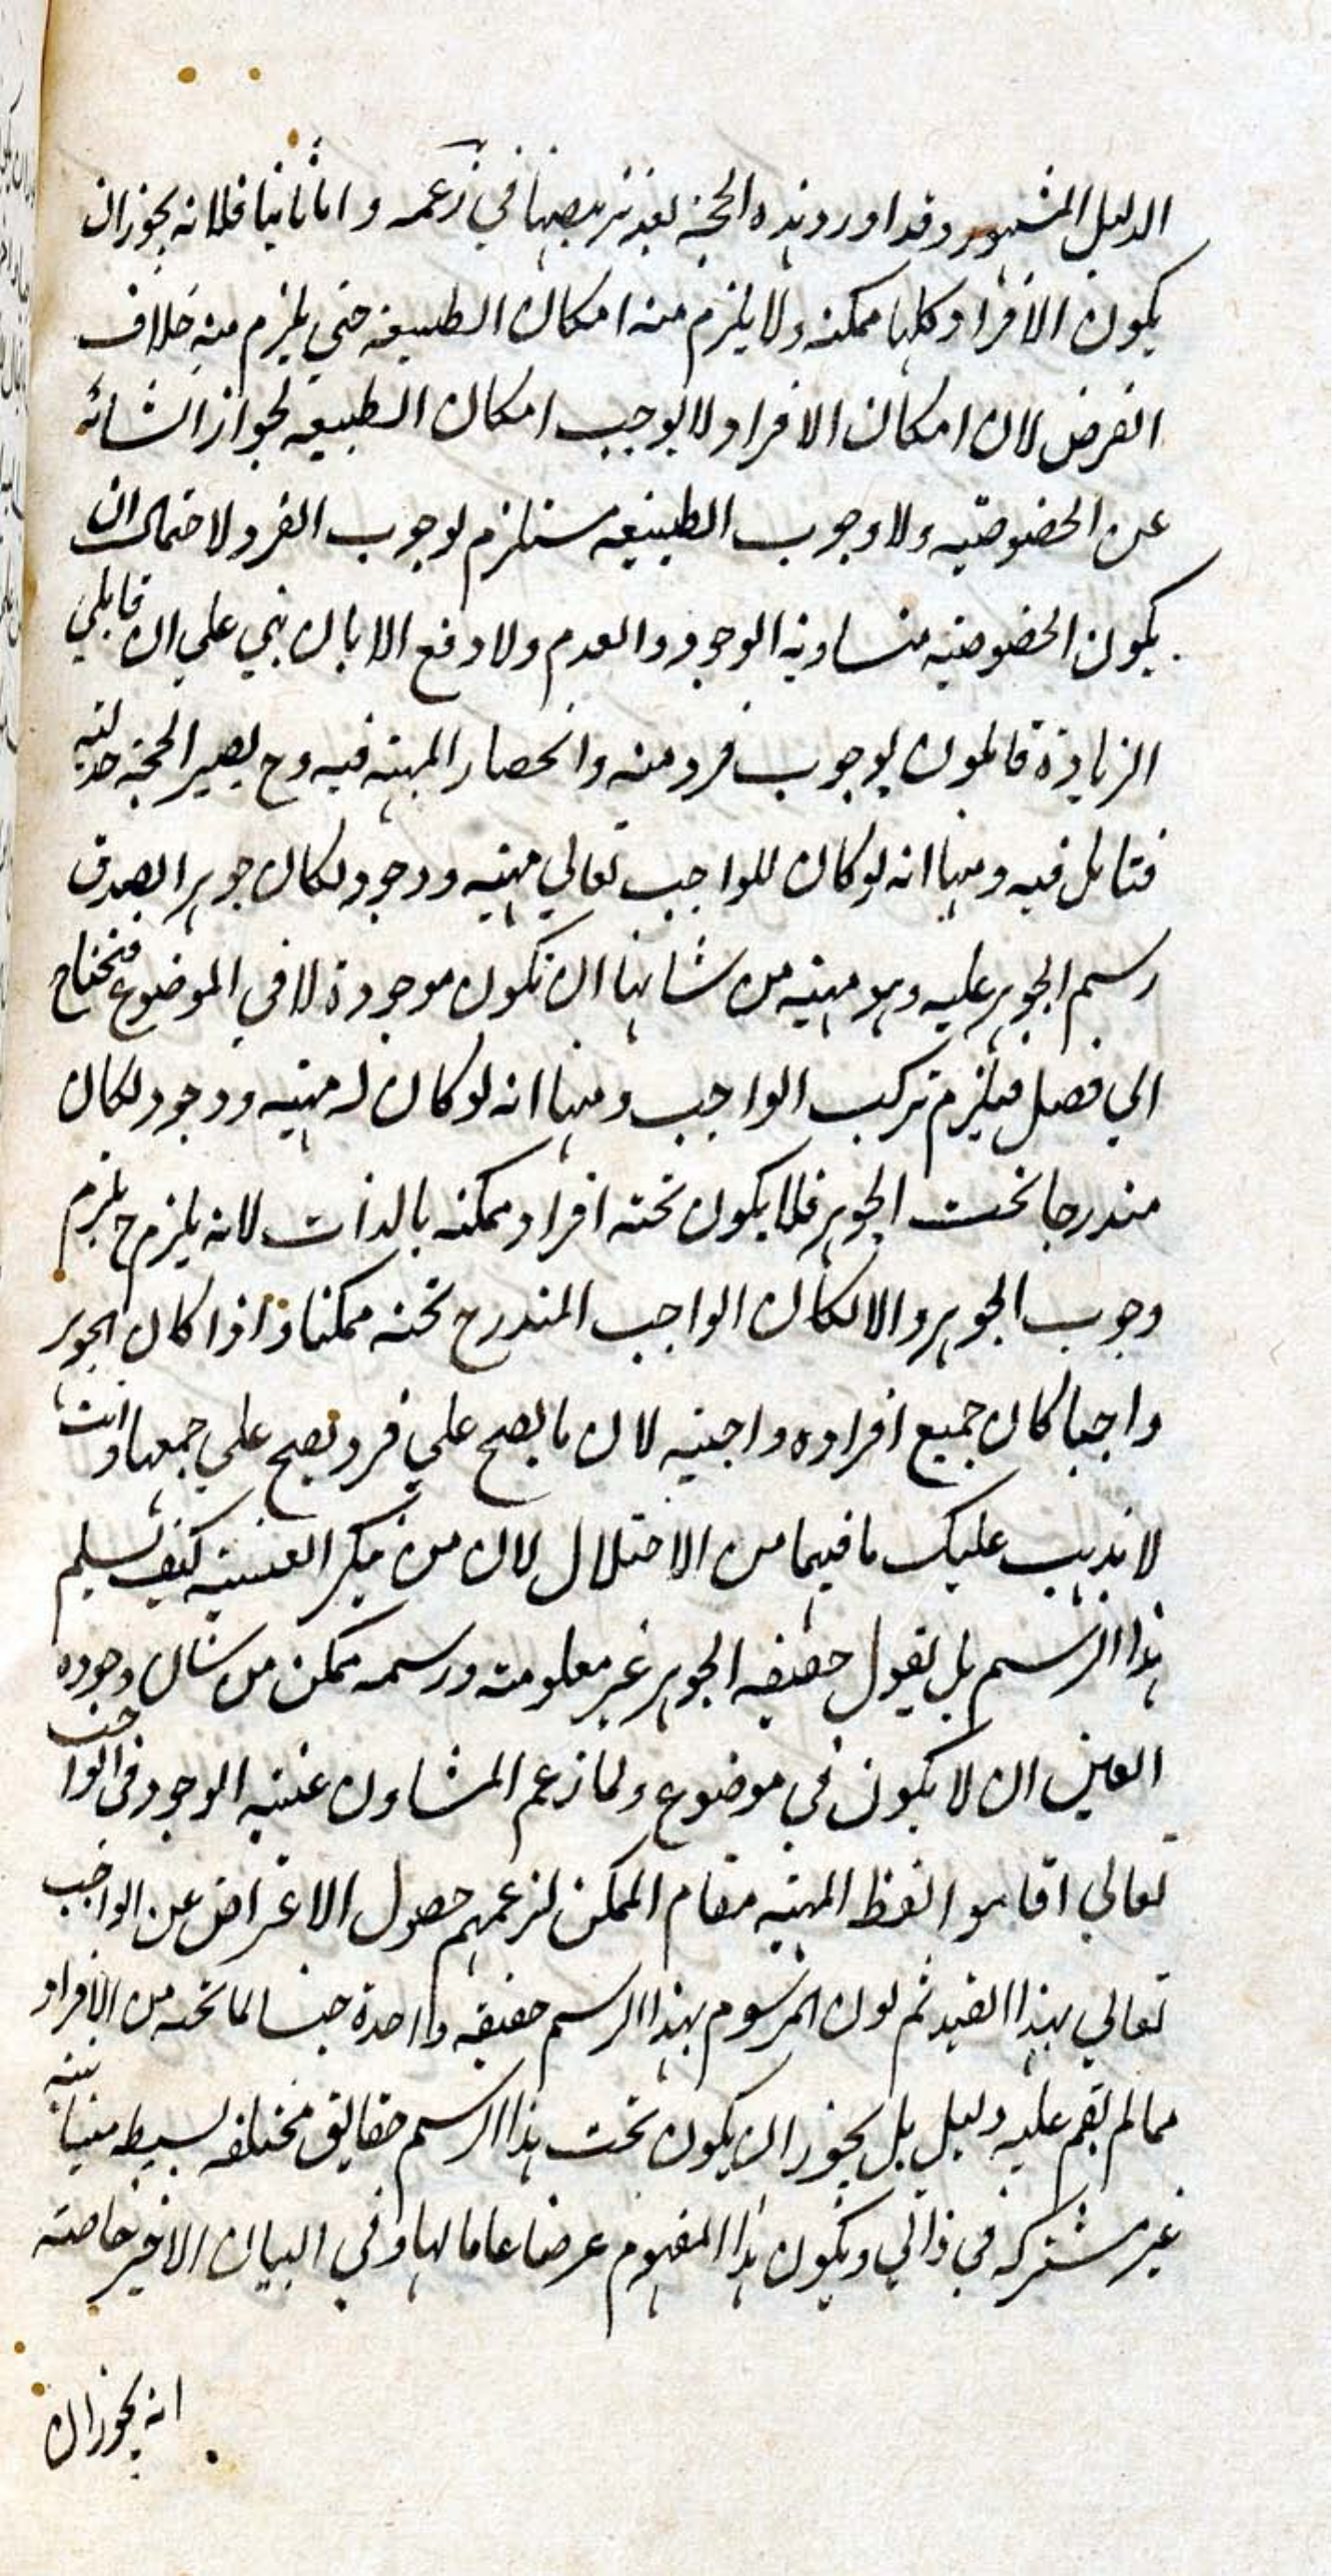 الدليل المشهور وقد اورد هذه الحجة بعد تزييفها في زعمه واما ثانيا فلانه يجوز ان
يكون الافراد كلها ممكنة ولا يلزم منه امكان الطبيعة حتى يلزم منه خلاف
الفرض لان امكان الافراد لا يوجب امكان الطبيعة لجواز انشائه
عن الخصوصية ولا وجوب الطبيعة مستلزم لوجوب الفرد لاحتمال ان
يكون الخصوصية متساوية الوجود والعدم ولا دفع الا بان بني على ان قايلي
الزيادة قايلون بوجوب فرد منه وانحصار المهية فيه وح يصير الحجة جدلية
فتامل فيه ومنها انه لو كان للواجب تعالى مهية ووجود لكان جوهرا لصدق
رسم الجوهر عليه وهو مهية من شانها ان تكون موجودة لا في الموضوع فيحتاج
الي فصل فيلزم تركب الواجب ومنها انه لو كان له مهية ووجود لكان
مندرجا تحت الجوهر فلا يكون تحته افراد ممكنة بالذات لانه يلزم ح يلزم
وجوب الجوهر والا لكان الواجب المندرج تحته ممكنا واذا كان الجوهر
واجبا كان جميع افراده واجبية لان ما يصح على فرد يصح على جمعها وانت
لا يذهب عليك ما فيهما من الاختلال لان من ينكر العينية كيف يسلم
هذا الرسم بل يقول حقيقة الجوهر غير معلومة ورسمه ممكن من شان وجوده
العين ان لا يكون في موضوع ولما زعم المشاون عينية الوجود في الواجب
تعالى اقاموا لفظ المهية مقام الممكن لزعمهم حصول الاغراض عن الواجب
تعالى بهذا القيد ثم كون المرسوم بهذا الرسم حقيقة واحدة جنسا لما تحته من الافراد
مما لم يقم عليه دليل بل يجوز ان يكون تحت هذا الرسم حقايق مختلفة بسيطة متباينة
غير مشتركة في ذاتي ويكون هذا المفهوم عرضا عاما لها وفي البيان الاخير خاصة
انه يجوز ان